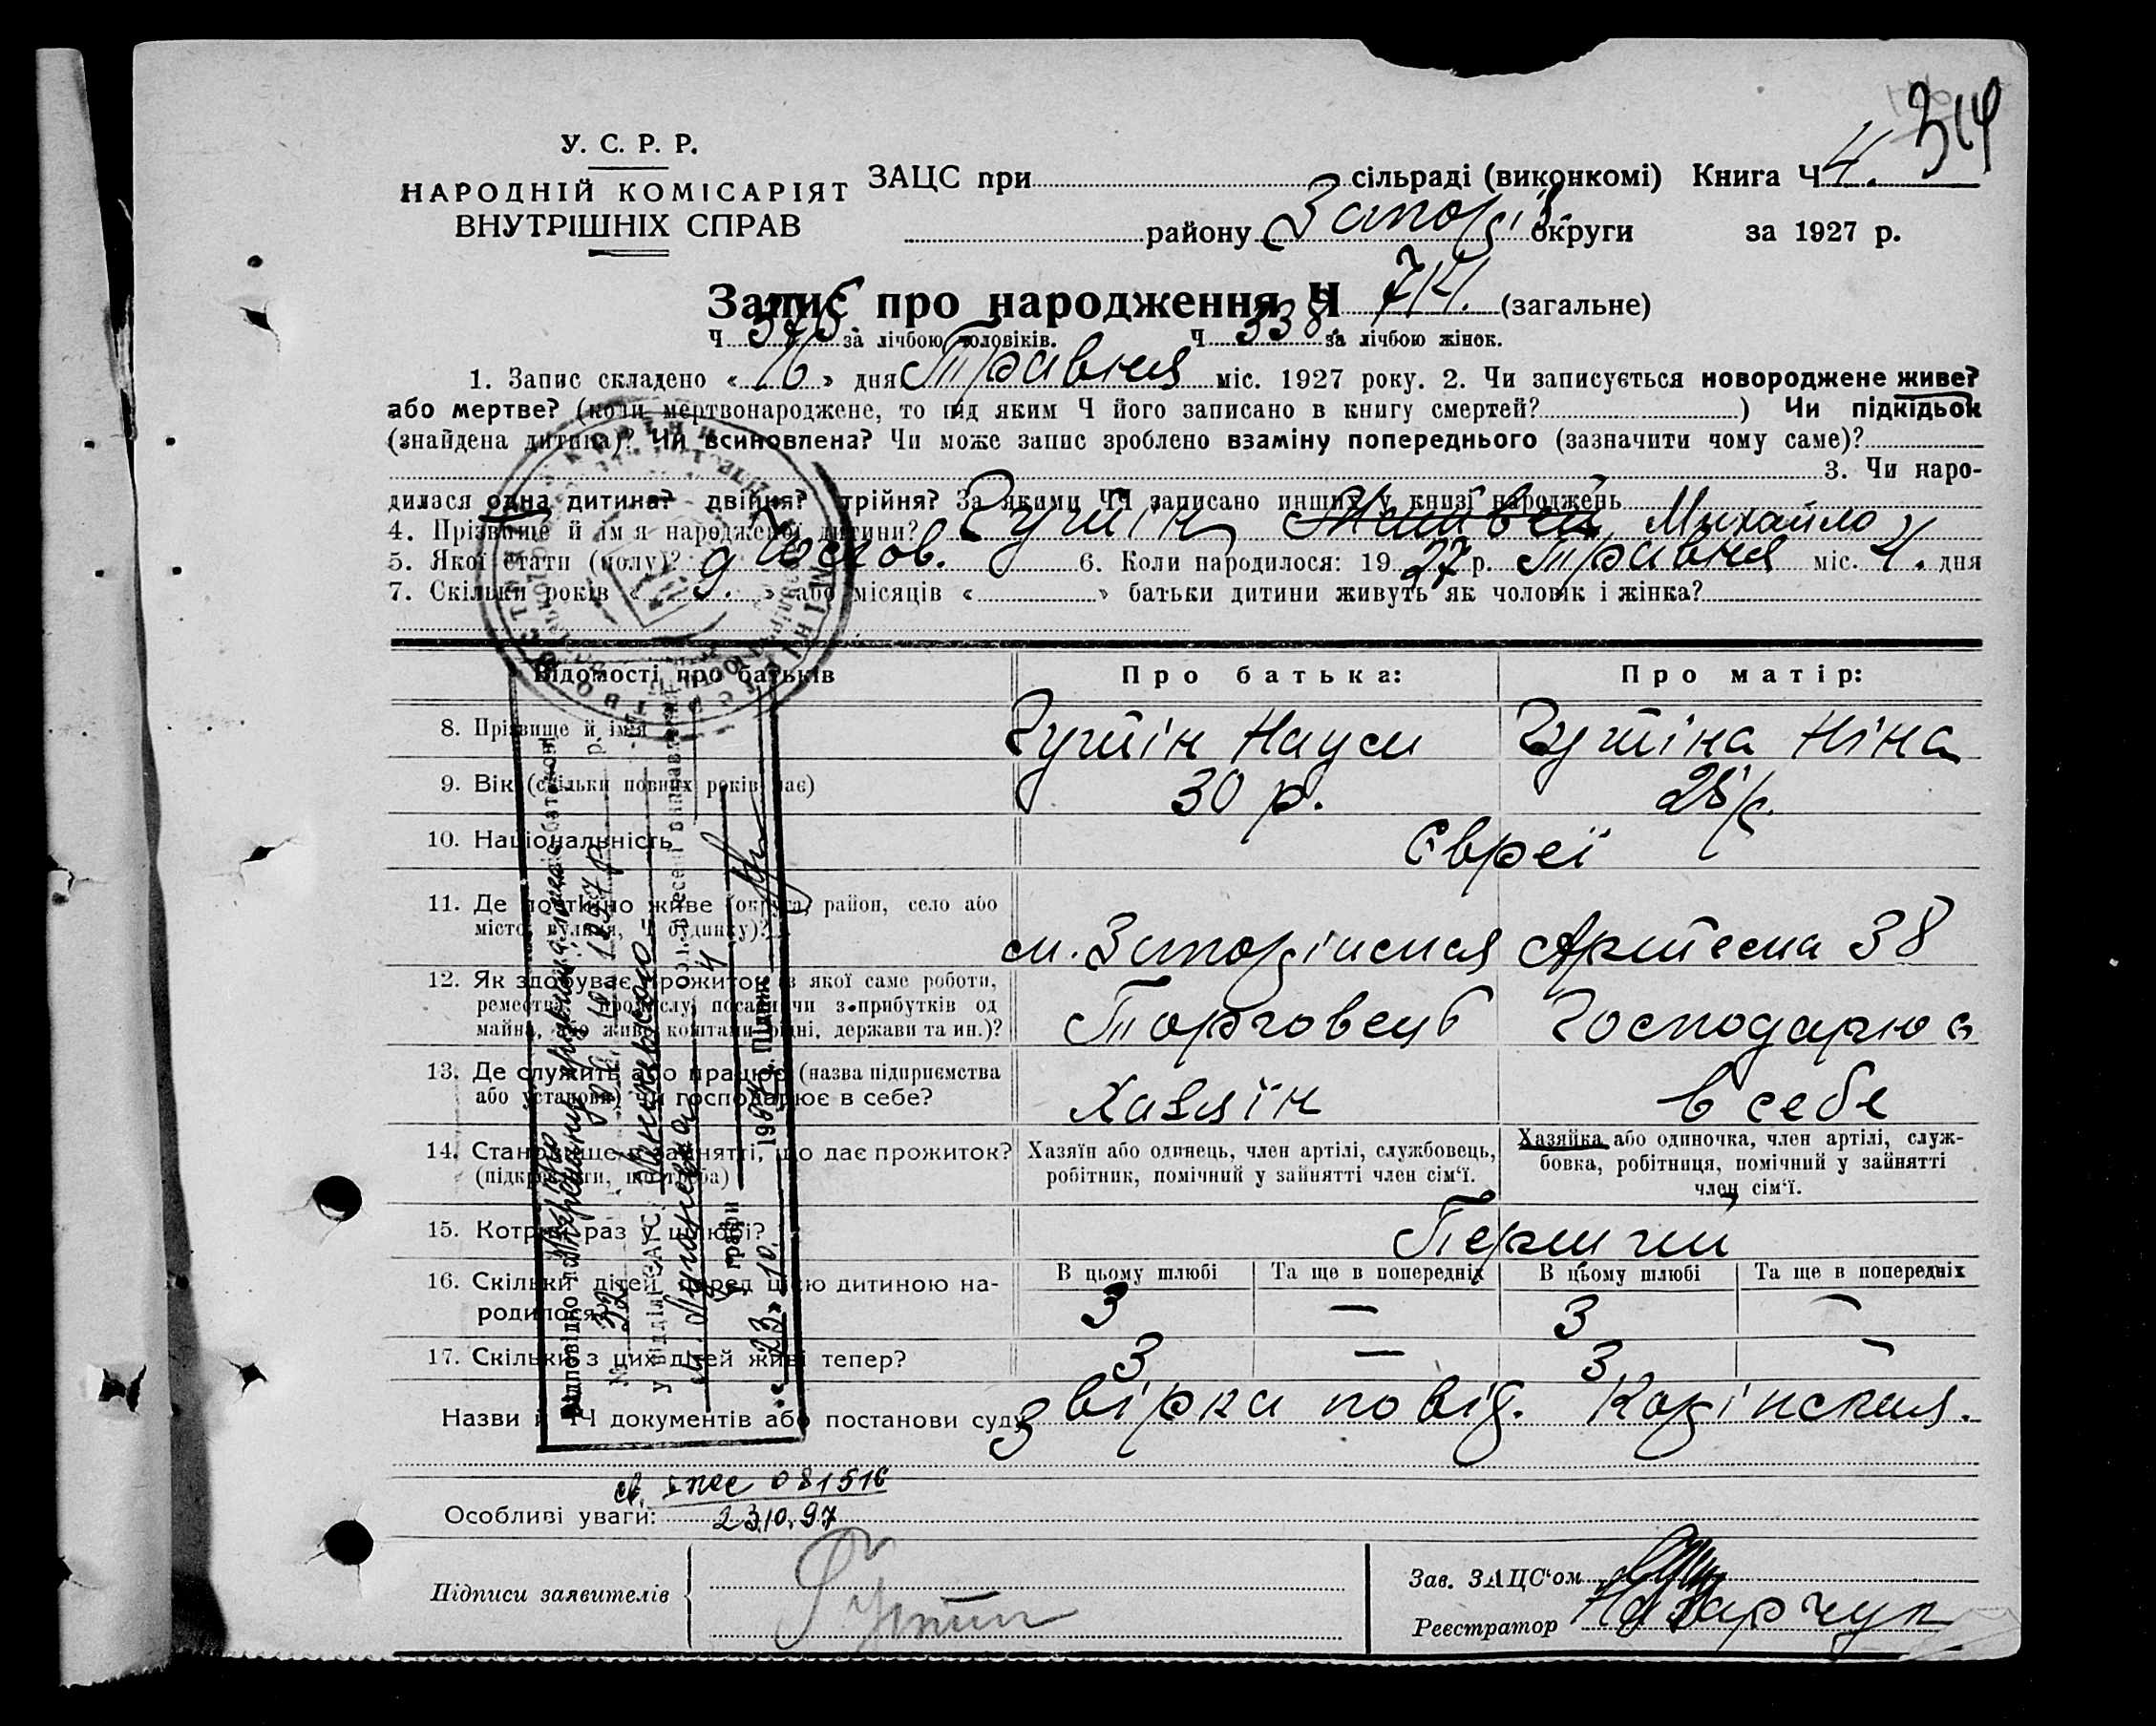 314
У. С. Р. Р.
НАРОДНІЙ КОМІСАРІЯТ
ВНУТРІШНІХ СПРАВ
ЗАЦС при сільраді (виконкомі) Книга Ч 4.
району Запоріз. округи за 1927 р.
Запис про народження Ч 714. (загальне)
Ч 376. за лічбою чоловіків. Ч 338. за лічбою жінок.
1. Запис складено « 16 » дня Травня міс. 1927 року. 2. Чи записується новороджене живе?
або мертве? (коли мертвонароджене, то під яким Ч його записано в книгу смертей? ) Чи підкідьок
(знайдена дитина)? Чи всиновлена? Чи може запис зроблено взаміну попереднього (зазначити чому саме)?
3. Чи наро-
дилася одна дитина? двійня? трійня? За якими ЧЧ записано инших у книзі народжень
4. Прізвище й ім'я народженої дитини? Гутін Михайло
5. Якої стати (полу)? Чолов. 6. Коли народилося: 19 27 р. Травня міс. 4. дня
7. Скільки років « 9. » або місяців « » батьки дитини живуть як чоловік і жінка?
Відомості про батьків Про батька: Про матір:
8. Прізвище й ім'я Гутін Наум Гутіна Ніна
9. Вік (скільки повних років має) 30 р. 28 р.
10. Національність Євреї
11. Де постійно живе (округа, район, село або
місто, вулиця, Ч будинку)? м. Запоріжжя 38
12. Як здобуває прожиток (з якої саме роботи,
ремества, промислу, посади чи з прибутків од
майна, або живе коштами рідні, держави та ин.)? Торговець Господарює
13. Де служить або працює (назва підприємства
або установи) чи господарює в себе? Хазяїн в себе
14. Становище в занятті, що дає прожиток?
(підкреслити, що треба)
Хазяїн або одинець, член артілі, службовець,
робітник, помічний у зайнятті член сім'ї.
Хазяйка або одиночка, член артілі, служ-
бовка, робітниця, помічний у зайнятті
член сім'ї.
15. Котрий раз у шлюбі? Перший
16. Скільки дітей перед цією дитиною на-
родилося?
В цьому шлюбі Та ще в попередніх В цьому шлюбі Та ще в попередніх
3 — 3 —
17. Скільки з цих дітей живі тепер? 3 — 3 —
Назви й Ч документів або постанови суду Звірка по від.
Відповідно до
№ 32 10 1997 р.
у відділі ЗАГС
У графи 4
«23» 10. 1997 р. Підпис
081516
Особливі уваги: 23.10.97
Підписи заявителів Гутин
Зав. ЗАЦС'ом
Реєстратор Назарчук